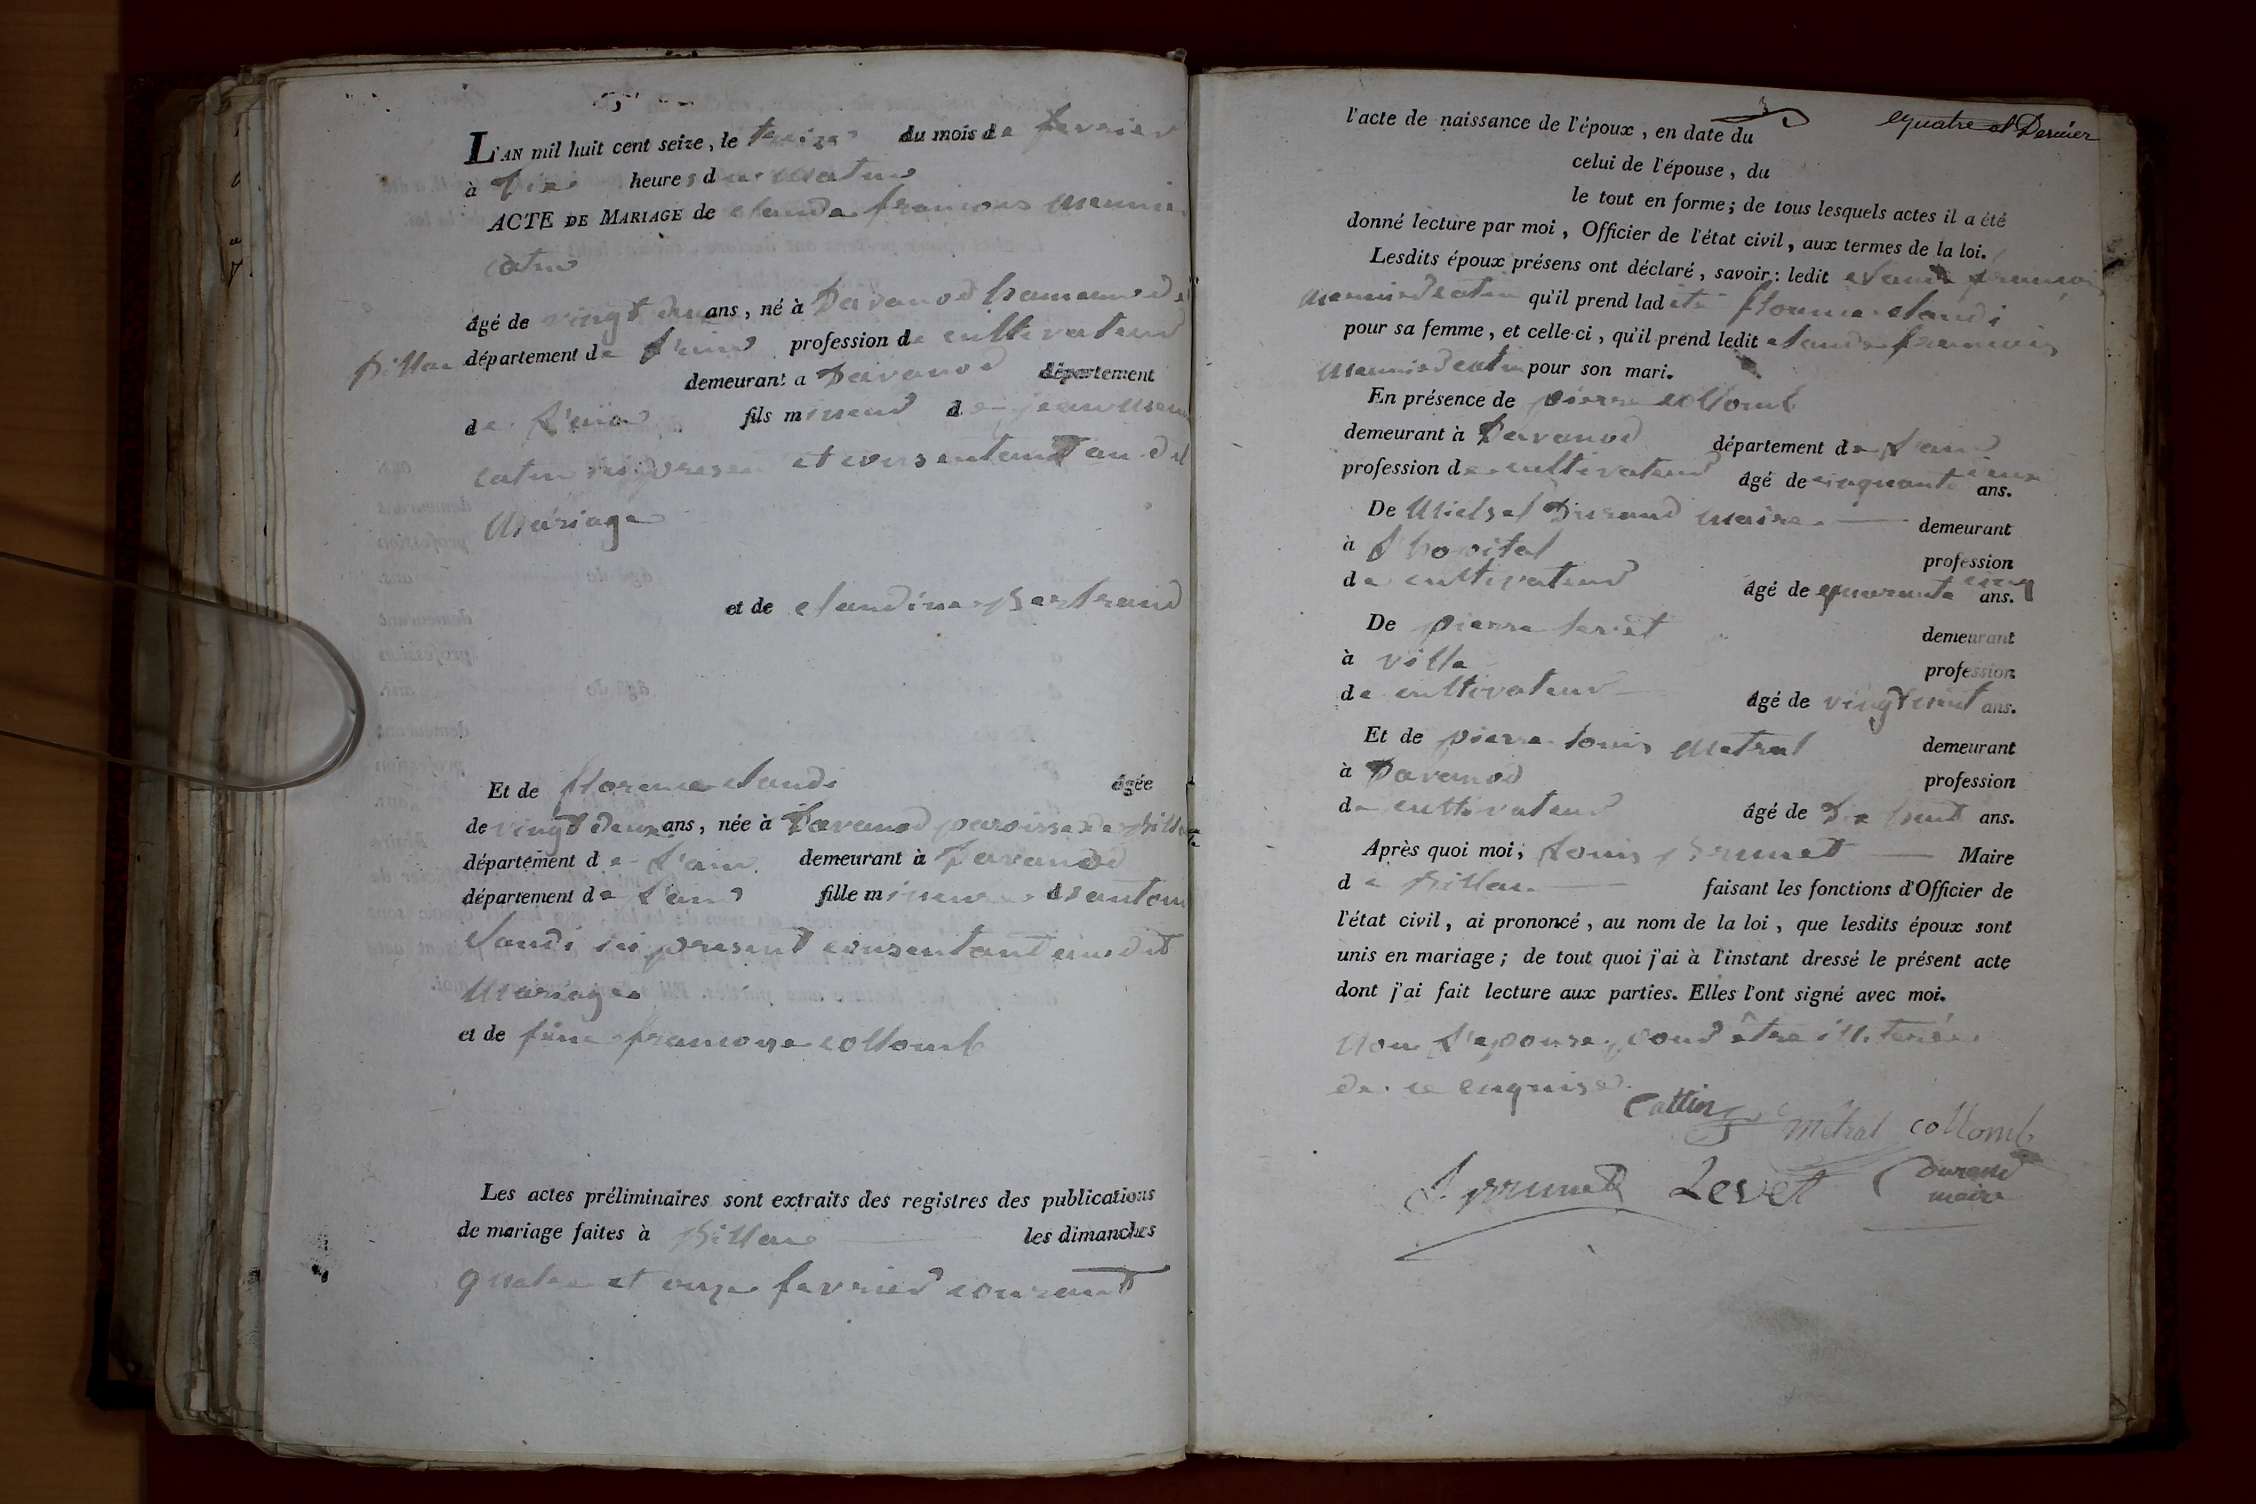 L'AN mil huit cent seize, le treize du mois de fevrier
à Dix heures du Matin
ACTE DE MARIAGE de claude francois Meunier
catin
âgé de vingt deux ans, né à Davanod hameau de
Billiac département de l'ain profession de cultivateur
demeurant a Davanod département
de l'ain fils mineur de jean Meunier
catin ici present et consentant au dit
Mariage
et de claudine Bertrand
Et de florence claudi âgée
de vingt deux ans, née à Davanod paroisse de
département de l'ain demeurant à Davanod
département de l'ain fille mineure
claudi ici present consentant audit
Mariage
et de feue francoise collomb
Les actes préliminaires sont extraits des registres des publications
de mariage faites à les dimanches
quatre et onze fevrier courant
equatre et Dernier
l'acte de naissance de l'époux, en date du
celui de l'épouse, du
le tout en forme; de tous lesquels actes il a été
donné lecture par moi, Officier de l'état civil, aux termes de la loi.
Lesdits époux présens ont déclaré, savoir: ledit claude francois
Meunier catin qu'il prend ladite florence claudi
pour sa femme, et celle-ci, qu'il prend ledit claude francois
Meunier catin pour son mari.
En présence de pierre collomb
demeurant à Davanod département de l'ain
profession de cultivateur âgé de cinquante deux ans.
De Michel Durand maire demeurant
à l'hopital profession
de cultivateur âgé de quarante cinq ans.
De pierre levet demeurant
à ville profession
de cultivateur âgé de vingt huit ans.
Et de pierre louis Metral demeurant
à Davanod profession
de cultivateur âgé de Dix huit ans.
Après quoi moi, louis Brunet Maire
de faisant les fonctions d'Officier de
l'état civil, ai prononcé, au nom de la loi, que lesdits époux sont
unis en mariage; de tout quoi j'ai à l'instant dressé le présent acte
dont j'ai fait lecture aux parties. Elles l'ont signé avec moi.
non l'epouse pour être illiterée
de ce enquise
Cattin Métral collomb
L Brunet Levet Durand
maire